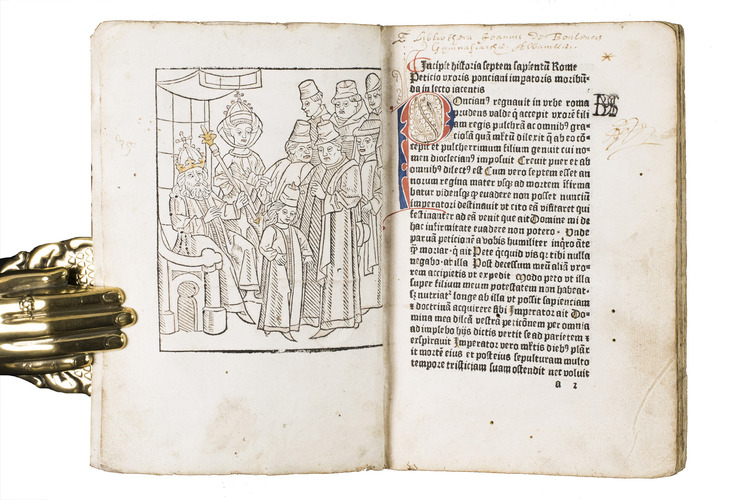 E Bibliotheca Joannis
Incipit historia septem sapientũ Rome
Peticio vxoris ponciani impatoris moribũ-
da in lecto iacentis
POncianꝰ regnauit in vrbe roma
prudens valde qͥ accepit vxorē fili
am regis pulchrā ac omnibꝰ gra-
ciosā quā mr̄tū dilexit q̄ ab eo cō-
cepit et pulcherrimum filium genuit cui no-
men dioclecianꝰ imposuit Creuit puer et ab
omnibꝰ dilectꝰ est Cum vero septem esset an
norum regina mater vsqꝫ ad mortem īfirma
batur vidensqꝫ ꝙ euadere non posset nunciũ
imperatori destinauit vt cito eā visitaret qui
festinanter ad eā venit que ait Domine mi de
hac infirmitate euadere non potero · Vnde
paruā peticionē a vobis humiliter inqͥro āte
ꝙͣ moriar · qͥ ait Pete qͥcquid vis qꝛ tibi nulla
negabo · at illa Post decessum meũ aliā vxo-
rem accipietis vt expedit Modo peto vt illa
super filium meum potestatem non habeat
sꝫ nutriatᷣ longe ab illa vt possit sapienciam
⁊ doctrinā acquirere sibi Imperator ait Do-
mina mea dilcā vestrā peticōnem per omnia
adimplebo hijs dictis vertit se ad parietem ⁊
exspirauit Imperator vero mr̄tis diebꝰ plāxit
it mortē eius et post eius sepulturam multo
tempore tristiciam suam ostendit nec voluit
a 2